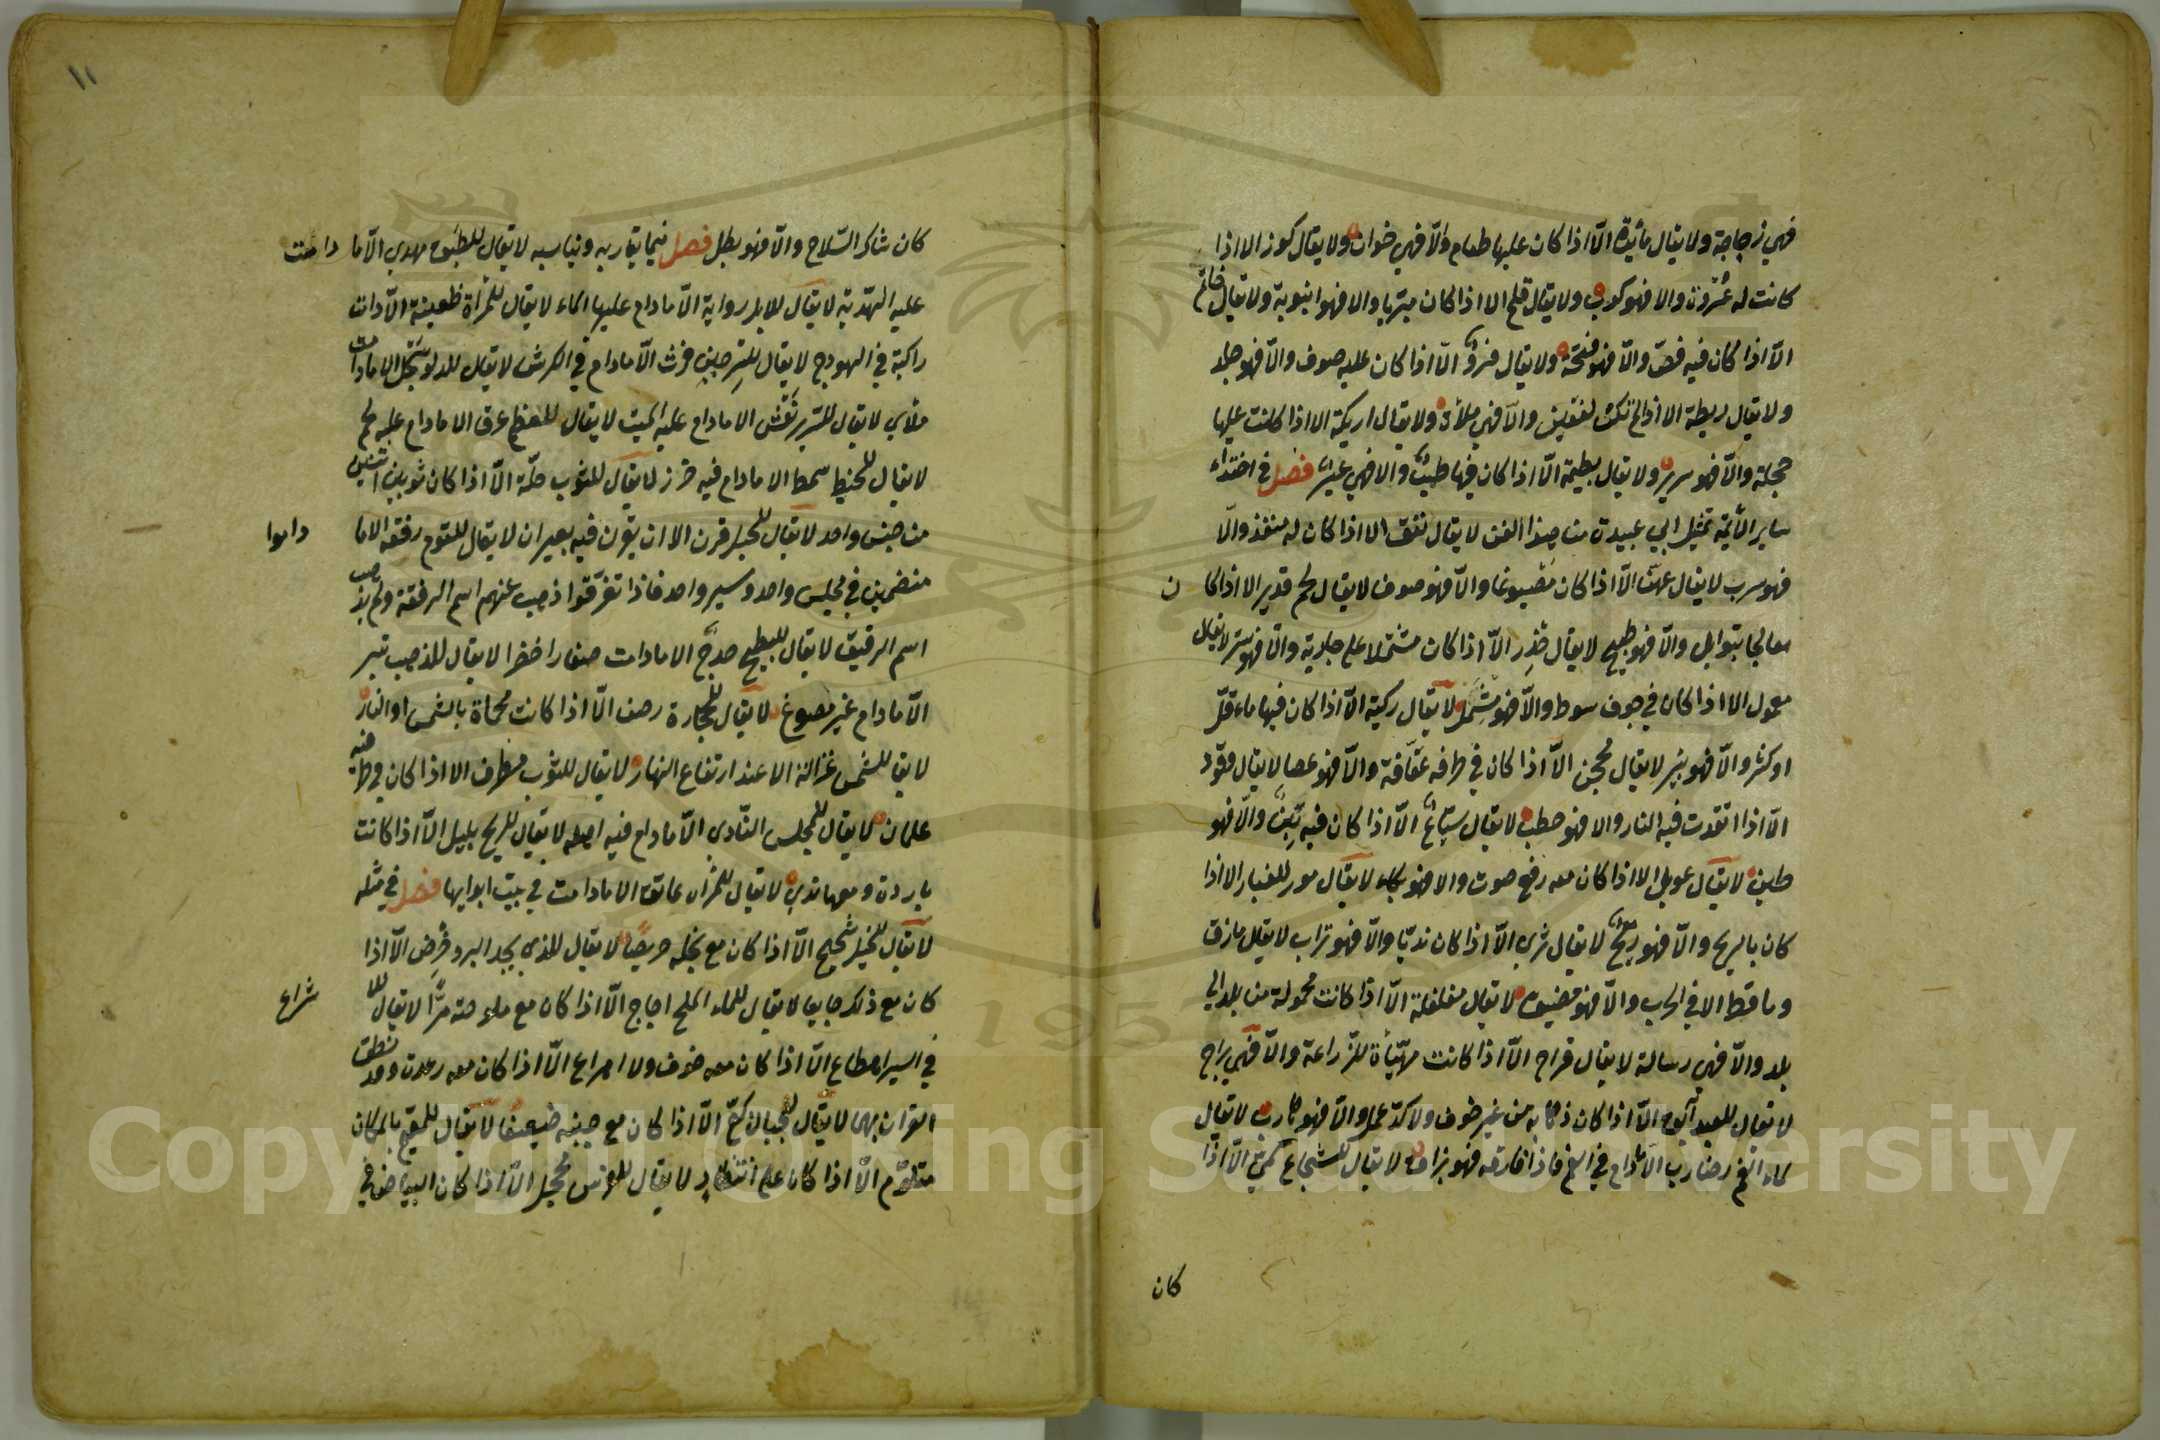 فهي زجاجة ولا يقال مائدة الّا اذا كان عليها طعام والّا فهي خوان ولا يقال كوز الا اذا
كانت له عروة والا فهو كوب ولا يقال قلم الا اذا كان مبريا والا فهو انبوبة ولا يقال خاتم
الّا اذا كان فيه فصّ والّا فهو فتخة ولا يقال فروٌ الّا اذا كان عليه صوف والّا فهو جلد
ولا يقال ريطة الا اذا لم تكن لفقين والّا فهي ملأة ولا يقال اريكة الا اذا كانت عليها
حجلة والّا فهو سرير ولا يقال لطيمة الّا اذا كان فيها طيبٌ والا فهي عيرٌ فصل في احتذاء
ساير الأئمة تمثيل ابي عبيدة من هذا الفن لا يقال نفق الا اذا كان له منفذ والّا
فهو سرب لا يقال عهن الّا اذا كان مصبوغا والّا فهو صوف لا يقال لحم قدير الا اذا كا ن
معالجا بتوابل والّا فهو طبيخ لا يقال خِدر الّا اذا كان مشتملا على جارية والّا فهو ستر لا يقال
مغول الا اذا كان في جوف سوط والّا فهو مِشمَل لا يقال ركية الّا اذا كان فيها ماء قلّ
او كثر والّا فهو بئر لا يقال محجن الّا اذا كان في طرفه عقّافة والّا فهو عصا لا يقال وقود
الّا اذا اتقدت فيه النار والا فهو حطب لا يقال سياعٌ الّا اذا كان فيه تبنٌ والّا فهو
طين لا يقال عويل الا اذا كان معه رفع صوت والا فهو بكاء لا يقال مور للغبار الا اذا
كان بالريح والّا فهو رهجٌ لا يقال ثرى الّا اذا كان نديّا والّا فهو تراب لا يقال مازق
وماقط الا في الحرب والّا فهو مضيق لا يقال مغلغلة الّا اذا كانت محمولة من بلد الي
بلد والّا فهي رسالة لا يقال قراح الّا اذا كانت مهيّأة للزراعة والّا فهي براح
لا يقال للعبد آبق الّا اذا كان ذهابه من غير خوف ولا كدّ عمل والّا فهو هارب لا يقال
لماء الفم رضاب الّا مادام في الفم فاذا فارقه فهو بزاق لا يقال للشجاع كميّ الّا اذا
كان
كان شاكر السّلاح والّا فهو بطل فصل فيما يقاربه ويناسبه لا يقال للطبق مهدي الّا ما دامت
عليه الهديّة لا يقال للابل رواية الّا مادام عليها الماء لا يقال للمرأة ظعينة الّا مادامت
راكبة في الهودج لا يقال للسرجين فرث الّا مادام في الكرش لا يقال للدلو سَجل الا مادامت
ملأي لا يقال للسرير نعش الا مادام عليه الميت لا يقال للعظم عرق الا مادام عليه لحم
لا يقال للخيط سمط الا مادام فيه خرز لا يقال للثوب حلّة الّا اذا كان ثوبين اثنين
من جنس واحد لا يقال للحبل قرن الا ان يقرن فيه بعيران لا يقال للقوم رفقة الا ما داموا
منضمين في مجلس واحد وسير واحد فاذا تفرّقوا ذهب عنهم اسم الرفقة ولم يذهب
اسم الرفيق لا يقال للبطيخ حدج الا مادامت صغارا خضرا لا يقال للذهب تبر
الّا مادام غير مصوغ لا يقال للحجارة رضف الّا اذا كانت محماة بالشمس او النار
لا يقا للشمس غزالة الا عند ارتفاع النهار لا يقال للثوب مطرف الا اذا كان في طرفيه
علمان لا يقال للمجلس النّادي الّا مادام فيه اهله لا يقال للريح بليل الّا اذا كانت
باردة ومعها ندي لا يقال للمرأه عاتق الا مادامت في بيت ابوايها فصل في مثله
لا يقال للبخيل شحيح الّا اذا كان مع بخله حريصًا لا يقال للذي يجد البرد خرِص الّا اذا
كان مع ذلك جايعا لا يقال للماء الملح اجاج الّا اذا كان مع ملوحته مرًّا لا يقال للا شراع
في السير اهطاع الّا اذا كان معه خوف ولا اهراع الّا اذا كان معه رعدة وقد نطق
القران بهما لا يقال للجبان كعّ الّا اذا كان مع جبنه ضيعفا لا يقال للمقيم بالمكان
متلوّم الّا اذا كان علي انتظار لا يقال للفرس محجل الّا اذا كان البياض في
١١
Copyright © King Saud University
1957